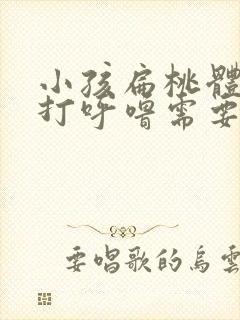 小孩扁桃體
打呼嚕需要
要唱歌的烏雲